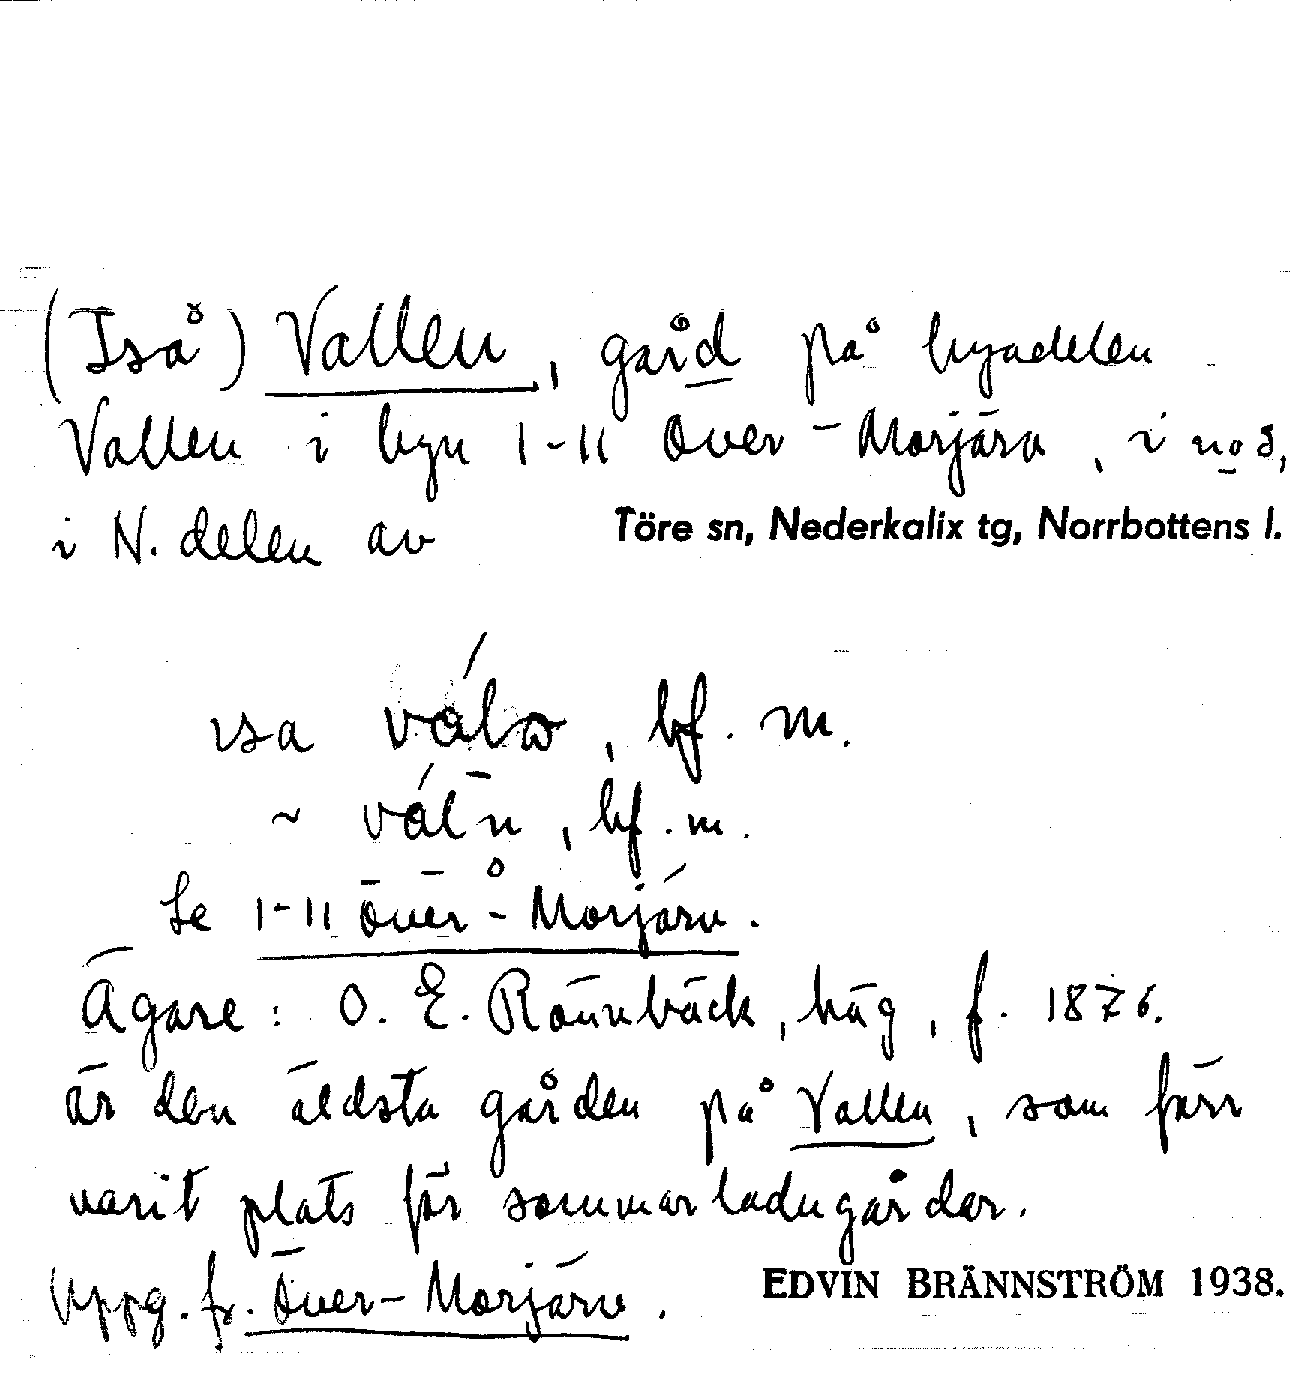 (Iså) Vallen, gård på byadelen
Vallen i byn 1-11 Över-Morjärv, i no 8,
i N. delen av Töre sn, Nederkalix tg, Norrbottens l.
ısa , bf. m.
~ , bf. m.
Se 1-11 Över-Morjärv.
Ägare: O. E. Rönnbäck, häg, f. 1876.
är den äldsta gården på Vallen, som förr
varit plats för sommarladugårdar.
Uppg. fr. Över-Morjärv. EDVIN BRÄNNSTRÖM 1938.